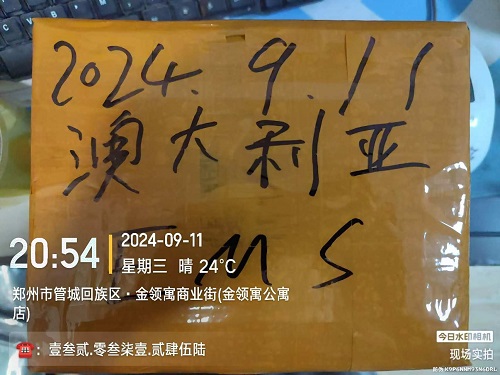 2024.9.11
澳大利亚
EMS
20:54
2024-09-11
星期三 晴 24℃
郑州市管城回族区·金领寓商业街(金领寓公寓
店)
☎：壹叁贰.零叁柒壹.贰肆伍陆
今日水印相机
现场实拍